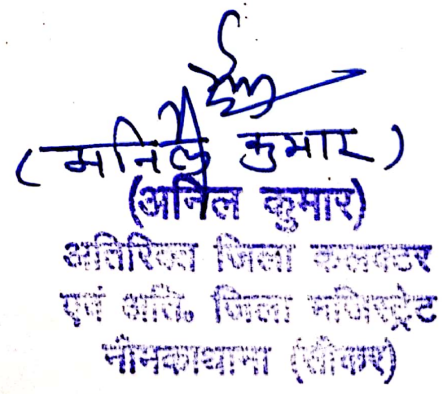 (मनिल कुमार)
(अनिल कुमार)
अतिरिक्त जिला कलक्टर
एवं अति० जिला मजिस्ट्रेट
नीमकाथाना (सीकर)